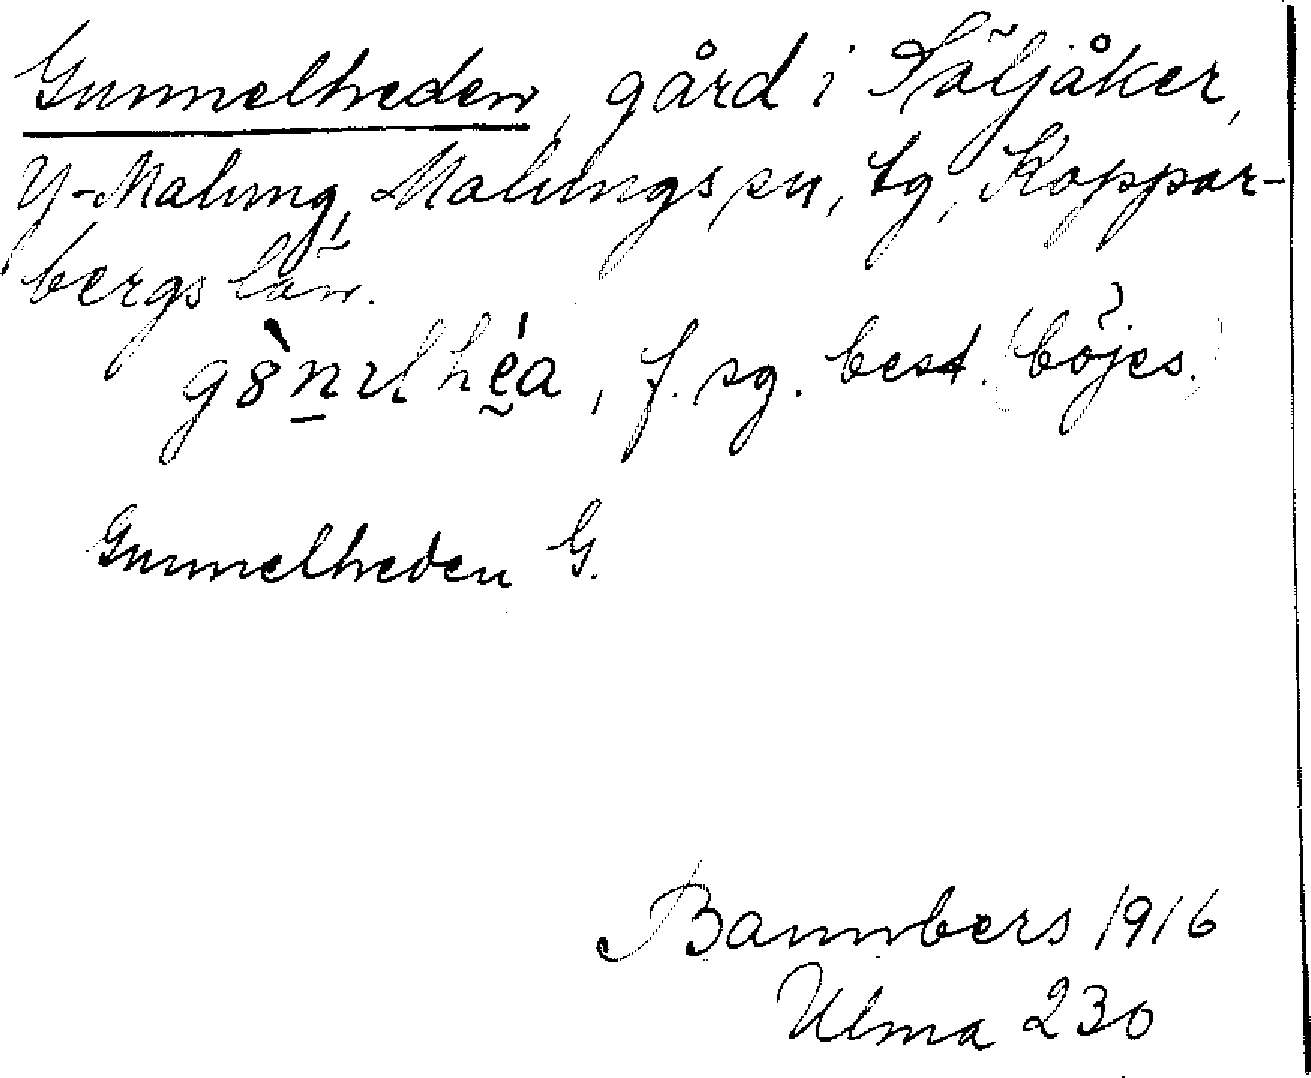 Gunnelheden, gård i Säljåker,
Y-Malung, Malungs sn, tg, Koppar-
bergs län.
gȣ̀n̲ɪl hḛ́a, f. sg. best. (böjes.)
Gunnelheden G.
Bannbers 1916
Ulma 230